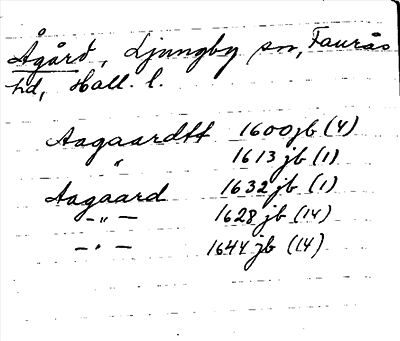 Ågård, Ljungby sn, Faurås
hd, Hall. l.
Aagaardtt 1600 jb (4)
" 1613 jb (1)
Aagaard 1632 jb (1)
-"- 1628 jb (14)
-"- 1644 jb (14)